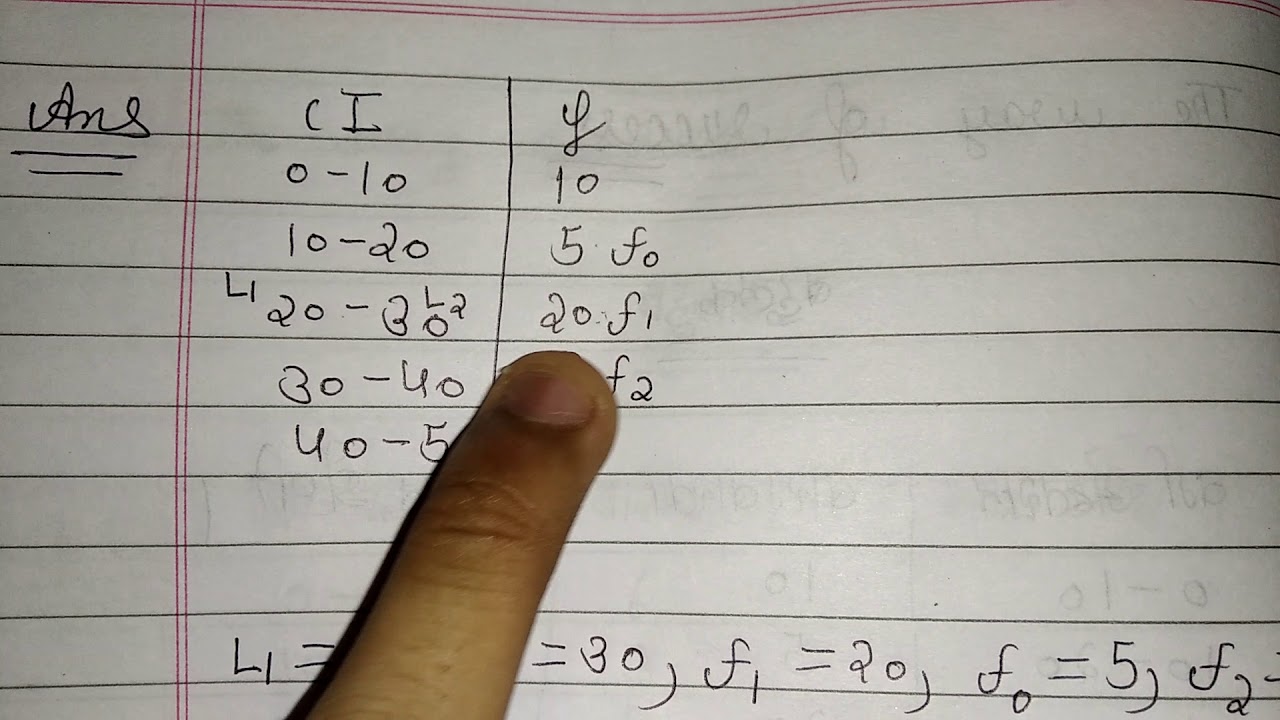 Ans CI f
0-10 10
10-20 5 f0
L1 20-30 L2 20 f1
30-40 f2
40-5
L1 = =30, f1 =20, f0 =5, f2